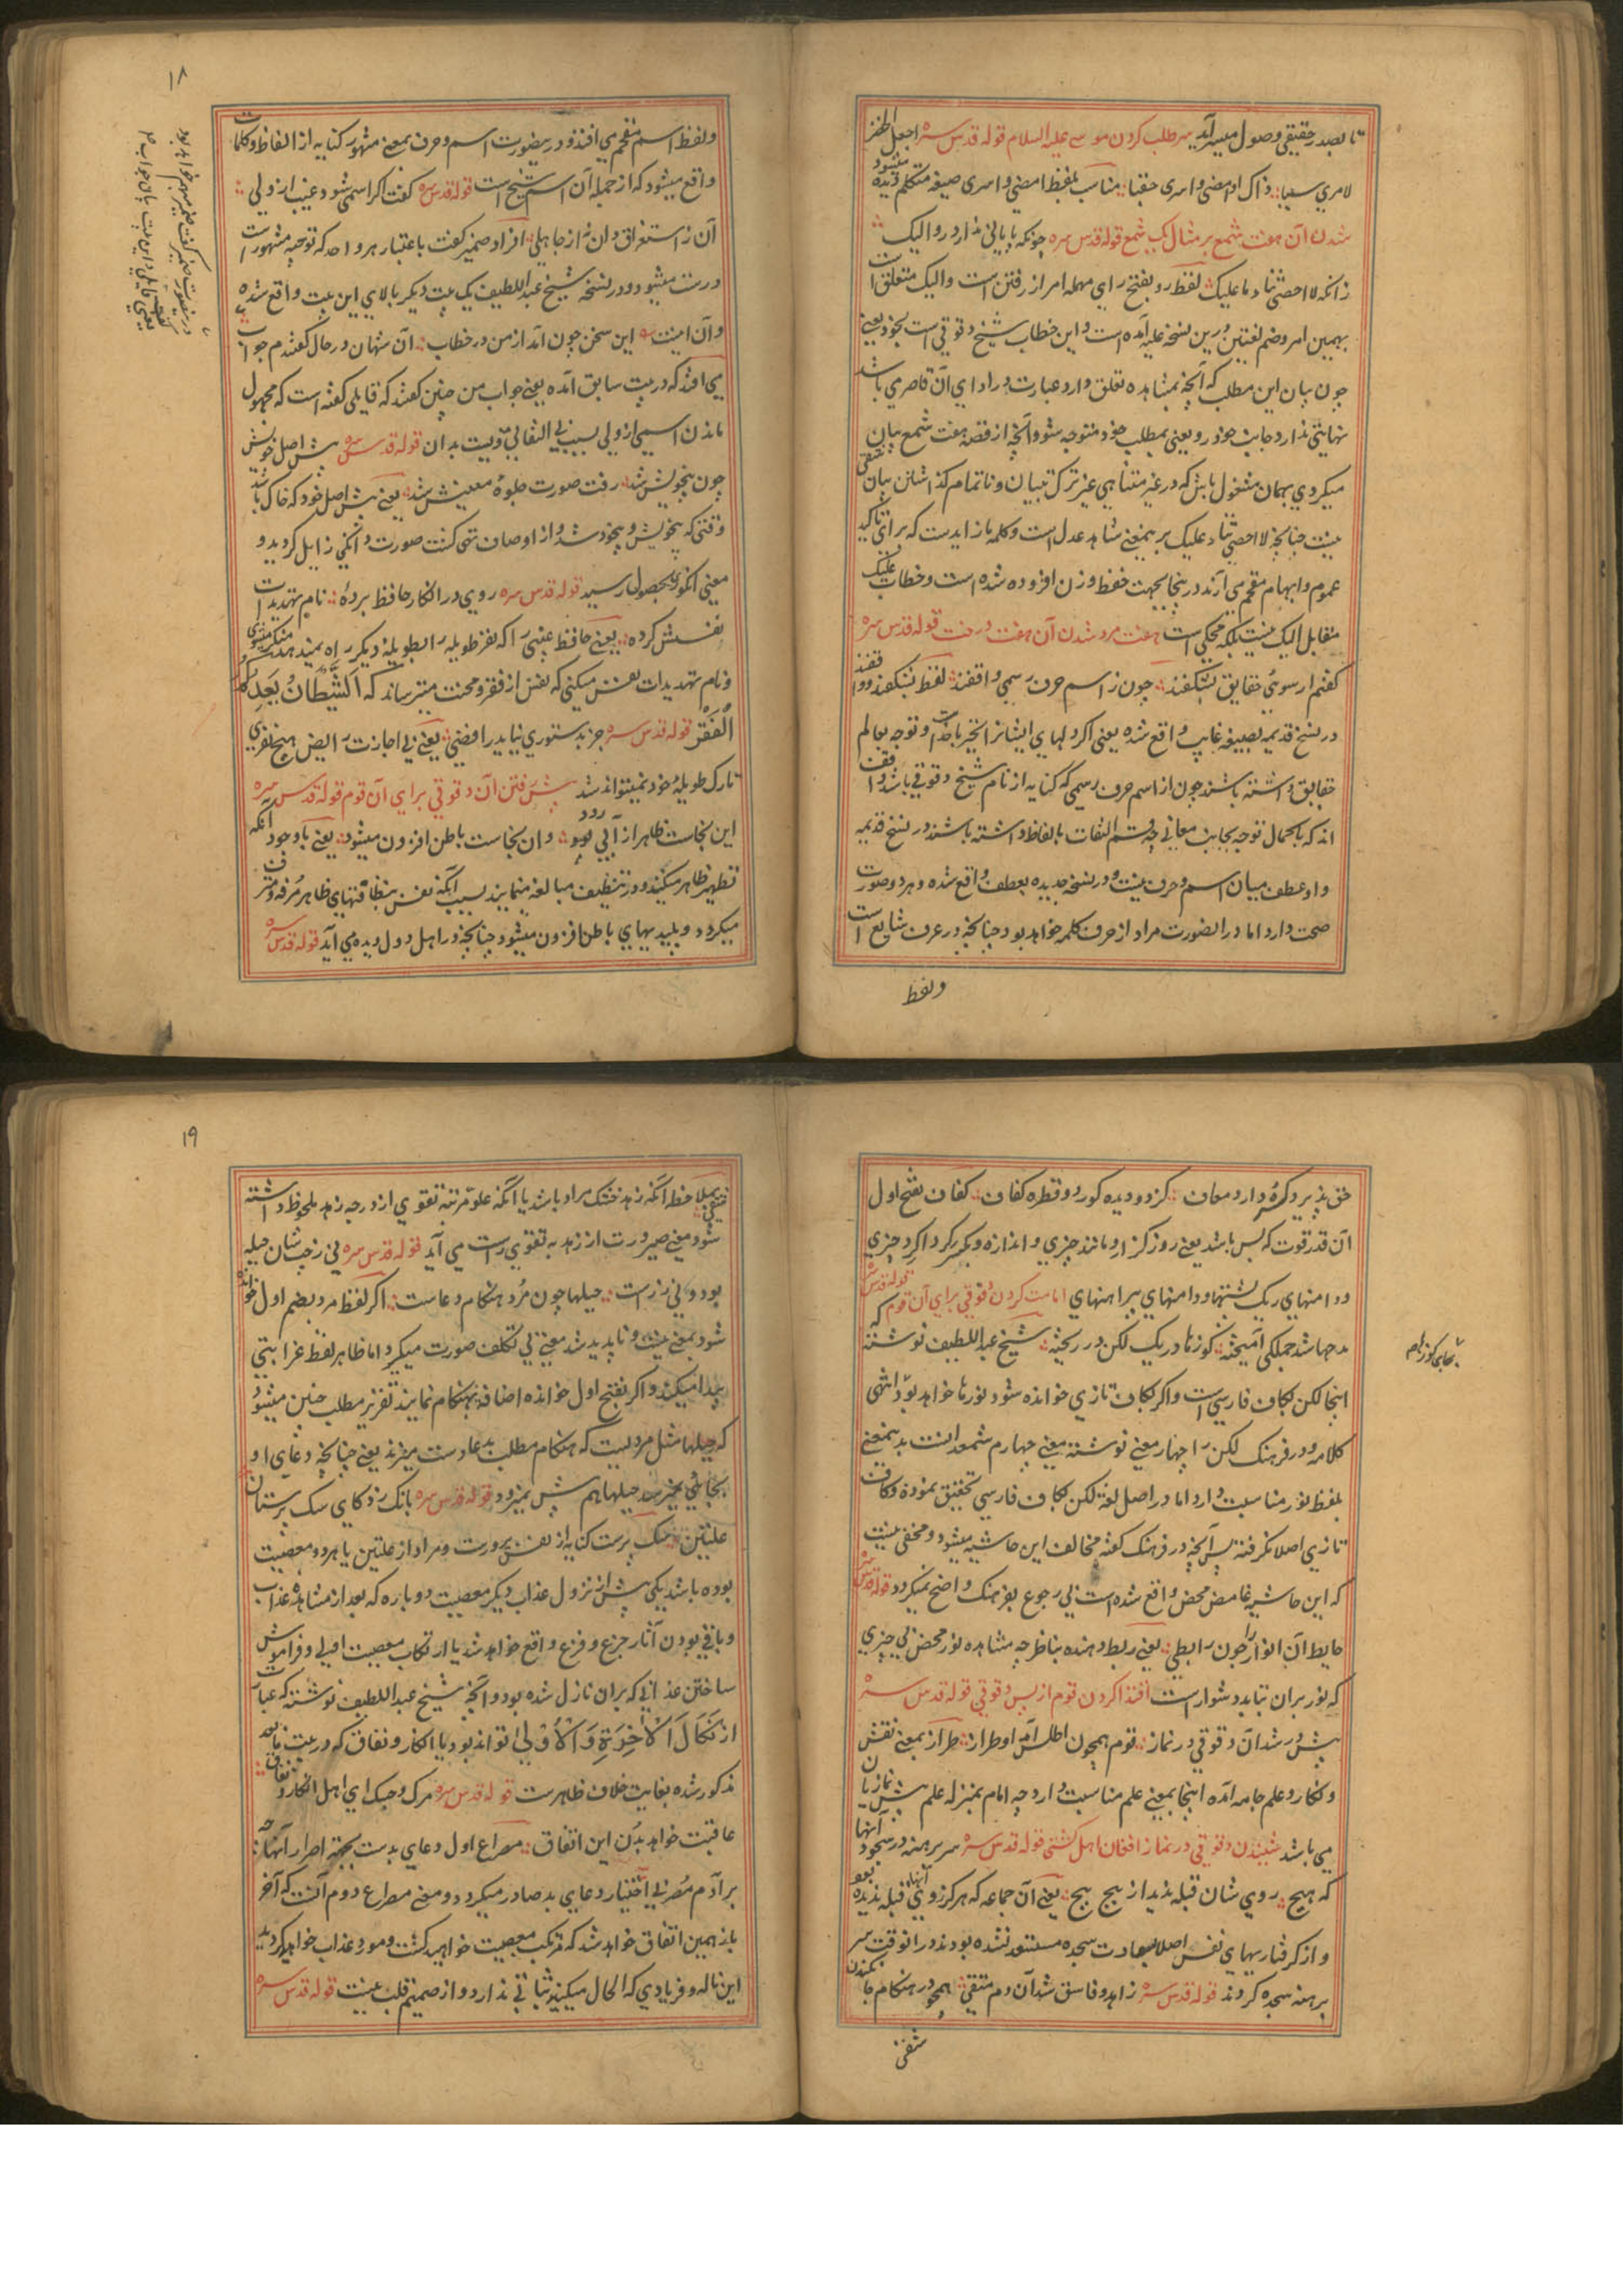 تا بصدر حقیقی وصول میسر آید سر طلب کردن موسی علیه السلام قوله قدس سره اجعل الخضر
لامری سببا ذاک او امضی و اسری حقبا مناسب بلفظ امضی و اسری صیغه متکلم دیده میشود
شدن آن هفت شمع بر مثال یک شمع قوله قدس سره چونکه پایانی ندارد رو الیک
زانکه لا احصی ثناء ما علیک لفظ رو بفتح رای مهمله امر از رفتن است و الیک متعلق است
بهمین امر و ضم لغتین درین نسخه علیه آمده است و این خطاب شیخ دقوقی است بخود یعنی
چون بیان این مطلب که آنچه بمشاهده تعلق دارد عبارت در ادای آن قاصر می باشد
نهایتی ندارد جانب خود رو یعنی بمطلب خود متوجه شو و آنچه از قصه هفت شمع بیان
میکردی بهمان مشغول باش که در غیر متناهی غیر ترک تبیان و ناتمام گذاشتن بیان شقی
نیست چنانچه لا احصی ثناء علیک بر بمعنی شاهد عدل است و کلمه ما زایدست که برای تاکید
عموم و ابهام مقحم می آرند در پنجا بجهت حفظ وزن افزوده شده است و خطاب علیک
متقابل الیک نیست بلکه محکی است هفت مرد شدن آن هفت درخت قوله قدس سره
گفتم ار سوی حقایق بشکفند چون ز اسم حرف رسمی واقفند لفظ بشکفند و واقفند
در نسخ قدیمه بصیغه غایب واقع شده یعنی اگر دلهای ایشان از خبر باخدا و توجه بعالم
حقایق داشته باشند چون از اسم حرف رسمی که کنایه از نام شیخ دقوقی باشد واقف
اند که با کمال توجه بجانب معانی چه قسم التفات بالفاظ داشته باشند در نسخ قدیمه
واو عطف میان اسم و حرف نیست و در نسخه جدیده بعطف واقع شده و هر دو صورت
صحت دارد اما در این صورت مراد از حرف کلمه خواهد بود چنانچه در عرف شایع است
ولفظ
۱۸
ولفظ اسم مقحم می افتد و درینصورت اسم و حرف بمعنی مشهور کنایه از الفاظ و کلمات
واقع میشود که از جمله آن اسم شیخ است قوله قدس سره گفت اگر اسمی شود غیب از ولی
آن ز استغراق دان نه از جاهلی افراد ضمیر گفت باعتبار هر واحد که توجیه مشهور است
درست میشود و در نسخه شیخ عبد اللطیف یک بیت دیگر بالای این بیت واقع شده
و آن اینست این سخن چون آمد از من در خطاب آن شهان در حال گفتندم جواب
می افتد که در بیت سابق آمده یعنی جواب من چنین گفتند که قایلی گفته است که مجهول
ماندن اسمی از ولی بسبب بی التفاتی ویست بدان قوله قدس سره پیش اصل خویش
چون بیخویش شد رفت صورت جلوه معنیش شد یعنی پیش اصل خود که خاک باشد
وقتی که بیخویش و بیخود شد و از اوصاف تهی گشت صورت دانگی زایل گردید و
معنی انگوری بحصول رسید قوله قدس سره روی در انکار حافظ برده نام تهدیدات
نفسش کرده یعنی حافظ غیبی را که بفر طویله را بطویله دیگر راه نمیدهد منکر میشوی
و نام تهدیدات نفس میکنی که نفس از فقر و محنت میترساند که الشَّیْطَانُ یَعِدُکُمُ
الْفَقْرَ قوله قدس سره جز بدستوری نیاید رافضی یعنی بی اجازت رایض هیچ نفری
تارک طویله خود نمیتواند شد پیش رفتن آن دقوقی برای آن قوم قوله قدس سره
این نجاست ظاهر از آبی رود وان نجاست باطن افزون میشود یعنی باوجود آنکه
تطهیر ظاهر میکنند و در تنظیف مبالغه مینمایند بسبب آنکه نفس بنظافتهای ظاهر مرفه و مترف
میگردد و پلیدیهای باطن افزون میشود چنانچه در اهل دول دیده می آید قوله قدس سره
حق پذیرد کره دارد معاف کز دو دیده کور دو قطره کفاف کفاف بفتح اول
آن قدر قوت که بس باشد یعنی روز گزار و مانند چیزی و اندازه و گرداگرد چیزی
و دامنهای ریگ پشتها و دامنهای پیراهنهای امامت کردن دقوقی برای آن قوم قوله قدس سره که
مدحها شد جملگی آمیخته کوزها در یک لگن در ریخته شیخ عبد اللطیف نوشته
اینجا لگن بکاف فارسی است و اگر بکاف تازی خوانده شود نورها خواهد بود انتهی
کلامه و در فرهنگ لگن را چهار معنی نوشته معنی چهارم شمعدانست بدینمعنی
بلفظ نور مناسبت دارد اما در اصل لغة لگن بکاف فارسی تحقیق نموده و کاف
تازی اصلا نگرفته پس آنچه در فرهنگ گفته مخالف این حاشیه میشود و مخفی نیست
که این حاشیه غامض محض واقع شده است بی رجوع بفرهنگ واضح نمیگردد قوله قدس سره
حایط آن انوار را چون رابطی یعنی ربط دهنده بناظر چه مشاهده نور محض بی چیزی
که نور بران تابد دشوار است اقتدا کردن قوم از پس دقوقی قوله قدس سره
پیش در شد آن دقوقی در نماز قوم همچون اطلس آمد او طراز طراز بمعنی نقش
و نگار و علم جامه آمده اینجا بمعنی علم مناسبت دارد چه امام بمنزله علم پیش نمازیان
می باشد شنیدن دقوقی در نماز افغان اهل کشتی قوله قدس سره سر برهنه در سجود آنها
که هیچ روی شان قبله ندید از پیچ پیچ یعنی آن جماعه که هرگز روی آنها قبله ندیده بود
و از گرفتاریهای نفس اصلا بسعادت سجده مستسعد نشده بودند در انوقت سر
برهنه سجده کردند قوله قدس سره زاهد و فاسق شد آن دم متقی همچو در هنگام جان کندن
شقی
بجای کوزها هم
۱۹
شقی بملاحظه آنکه زهد خشک مراد باشد یا آنکه علو مرتبه تقوی از درجه زهد ملحوظ داشته
شود معنی صیرورت از زهد به تقوی راست می آید قوله قدس سره نی ز چپ شان حیله
بود و نی ز راست حیلها چون مرد هنگام دعاست اگر لفظ مرد بضم اول خوانده
شود بمعنی نیست و ناپدید شد معنی بی تکلف صورت میگیرد اما ظاهر لفظ غرابتی
پیدا میکند و اگر بفتح اول خوانده اضافه بهنگام نمایند تقریر مطلب چنین میشود
که حیلها مثل مردیست که هنگام مطلب بدعا دست میزند یعنی چنانچه دعای او
بجائی نمیرسد حیلها هم پیش نمیرود قوله قدس سره بانگ زد کای سگ پرستان
علتین سگ پرست کنایه از نفس پرورست و مراد از علتین یا هر دو معصیت
بوده باشد یکی پیش از نزول عذاب دیگر معصیت دوباره که بعد از مشاهده عذاب
و باقی بودن آثار جزع و فزع واقع خواهد شد یا ارتکاب معصیت اولی و فراموش
ساختن عذابی که بران نازل شده بود و آنچه شیخ عبد اللطیف نوشته که عبارت
از نَکَالَ الْآخِرَةِ وَ الْأُوْلَیٰ تواند بود یا انکار و نفاق که در بیت مابعد
مذکور شده بغایت خلاف ظاهرست قوله قدس سره مرگ و جسک ای اهل انکار و نفاق
عاقبت خواهد بدن این اتفاق مصراع اول دعای بدست بجهة اصرار آنها چه
بر آدم مصر بی اختیار دعای بد صادر میگردد و معنی مصراع دوم آنست که آخر
باز همین اتفاق خواهد شد که مرتکب معصیت خواهید گشت و مورد عذاب خواهید گردید
این ناله و فریادی که الحال میکنید ثباتی ندارد و از صمیم قلب نیست قوله قدس سره